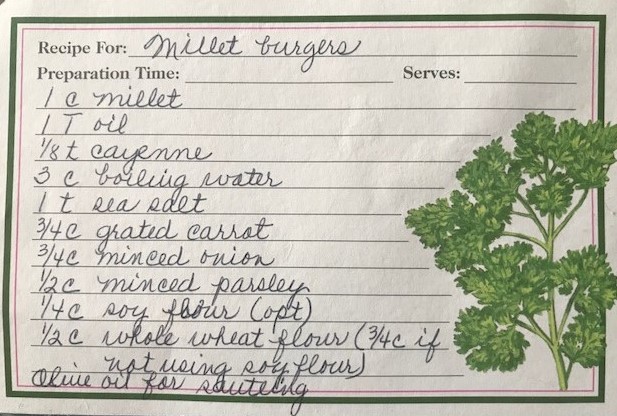 Recipe For: Millet burgers
Preparation Time: Serves:
1 c millet
1 T oil
1/8 t cayenne
3 c boiling water
1 t sea salt
3/4 c grated carrot
3/4 c minced onion
1/2 c minced parsley
1/4 c soy flour (opt)
1/2 c whole wheat flour (3/4 c if
not using soy flour)
Olive oil for sauteing